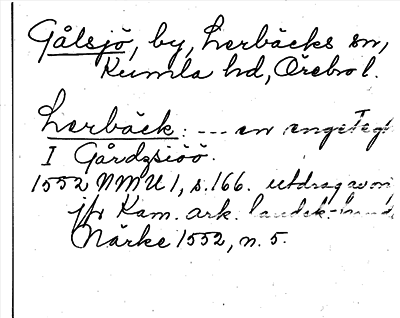 Gålsjö, by, Lerbäcks sn,
Kumla hd, Örebro l.
Lerbäck: --- en engetegh
I Gårdzsiöö.
1552 NMU 1, s. 166. utdrag av orig
jfr Kam. ark. landsk. hand
Närke 1552, n. 5.